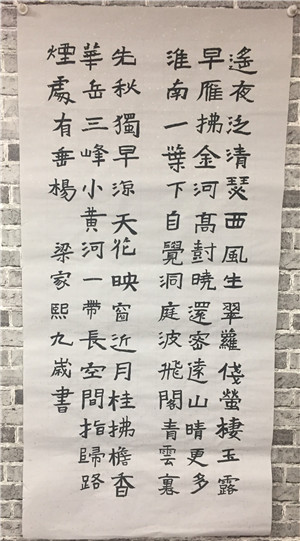 遙夜泛清瑟西風生翠蘿俴螢棲玉露
早雁拂金河高尌曉還密遠山晴更多
淮南一葉下自覺洞庭波飛閣青雲裏
先秋獨早涼天花映窗近月桂拂檐香
華岳三峰小黃河一帶長空間指歸路
煙處有垂楊 梁家熙九歲書